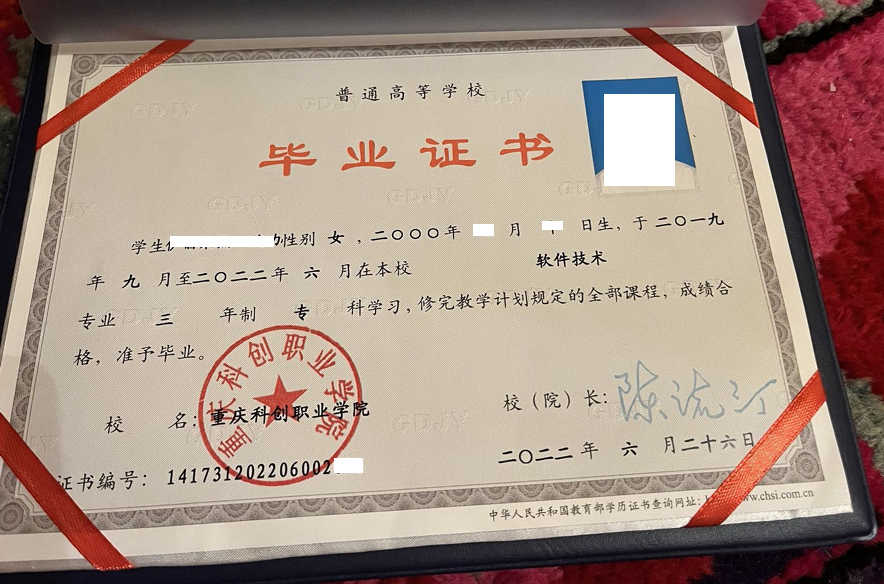 普通高等学校
毕业证书
学生 性别 女，二〇〇〇年 月 日生，于二〇一九
年 九 月至二〇二二年 六 月在本校 软件技术
专业 三 年制 专 科学习，修完教学计划规定的全部课程，成绩合
格，准予毕业。
重庆科创职业学院
校 名：重庆科创职业学院
校（院）长：
二〇二二年 六 月二十六日
证书编号：141731202206002
中华人民共和国教育部学历证书查询网址： www.chsi.com.cn
GDJY